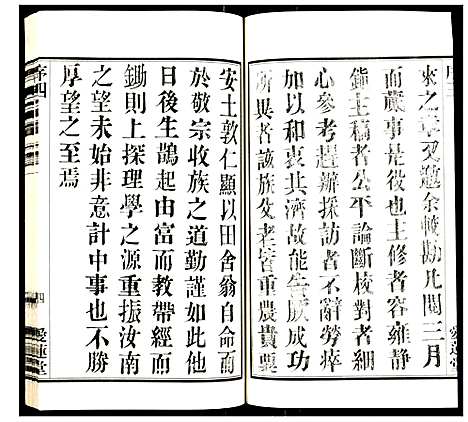 來之章又邀余較勘凡閱三月
而蕆事是役也主修者容雍靜
鎮主稿者公平論斷核對者細
心參考趕辦採訪者不辭勞瘁
如以和衷共濟故能以成功
所異者該族父老皆重農貴粟
安土敦仁顯以田舍翁自命而
於敬宗收族之道勤謹如此他
日後生鵲起由富而教帶經而
鋤則上探理學之源重振汝南
之望未始非意計中事也不勝
厚望之至焉
序四
四
愛蓮堂
序三
愛蓮堂